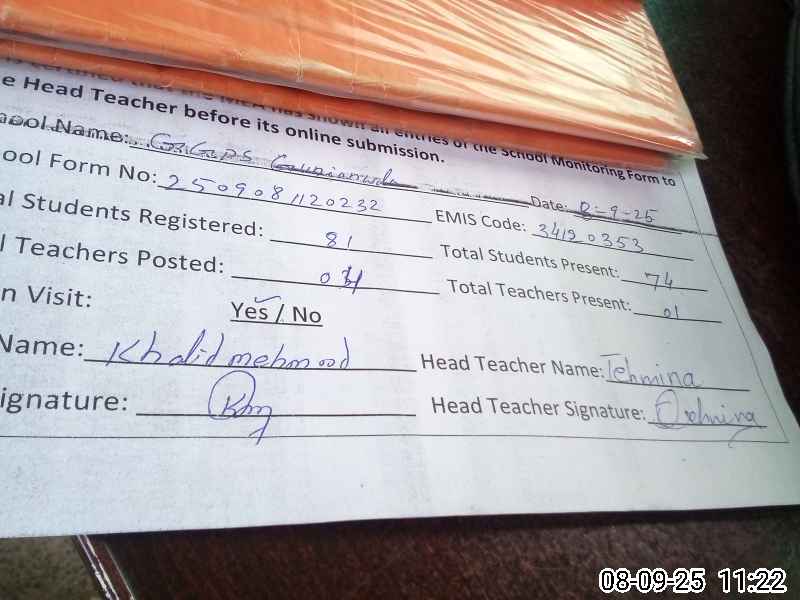 certified that the MEA has shown all entries of the School Monitoring Form to
e Head Teacher before its online submission.
ool Name: Date: 8-9-25
ool Form No: 2509081120232 EMIS Code: 34120353
al Students Registered: 81 Total Students Present: 74
l Teachers Posted: Total Teachers Present: 01
n Visit: Yes / No
Name: Khalid mehmood Head Teacher Name: Tehmina
ignature: Km Head Teacher Signature: Tehmina
08-09-25 11:22